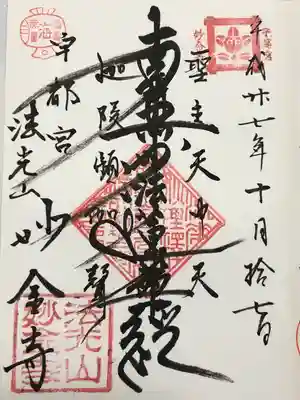 平成廿七年十月拾七日
聖主天中天
南無妙法蓮華経
迦陵頻伽聲
宇都宮
法光山
妙金寺
法光山
妙金寺